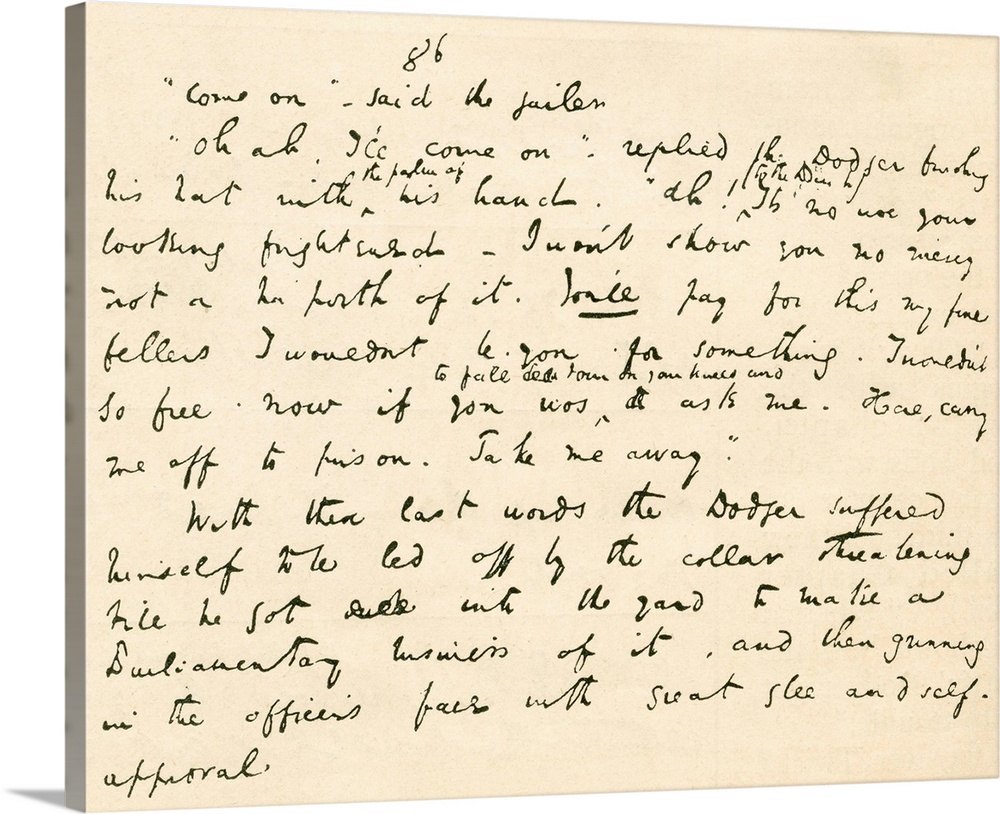 86
"Come on" - said the jailer
"Oh ah, I'll come on" - replied the Dodger brushing
his hat with the palm of his hand. "Ah! (to the Bench) It's no use your
looking frightened - I won't show you no mercy
not a ha'porth of it. You'll pay for this my fine
fellers I wouldn't be you for something. I wouldn't
go free now if you wos to fall down on your knees and ask me. Here, carry
me off to prison. Take me away".
With these last words the Dodger suffered
himself to be led off by the collar threatening
till he got into the yard to make a
Parliamentary business of it, and then grinning
in the officer's face with great glee and self-
approval